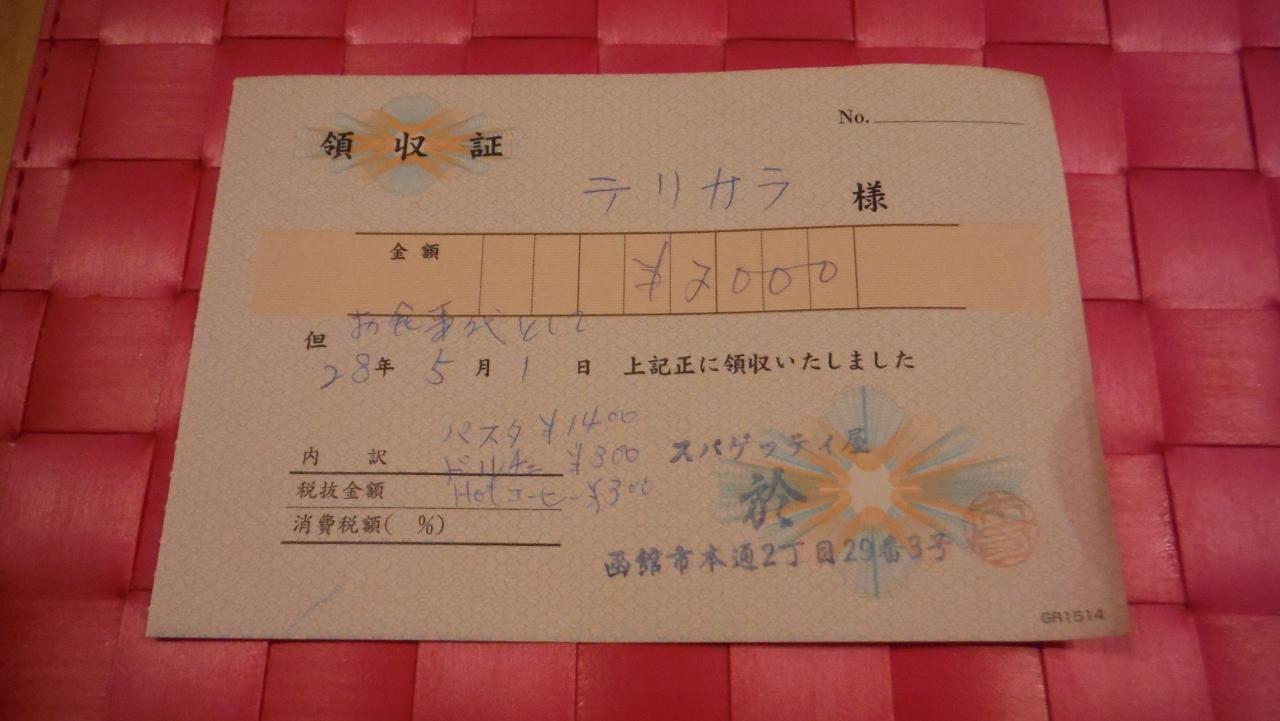 領収証
No.
テリカラ 様
金額 ¥2000
但 お食事代として
28年 5月 1日 上記正に領収いたしました
パスタ ¥1400
内訳 ドルチェ ¥300
税抜金額 Hotコーヒー ¥300
消費税額( %)
スパゲッティ屋
於
函館市本通2丁目29番3号
GR1514